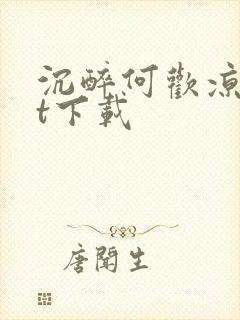 沉醉何歡涼
t下載
唐聞生